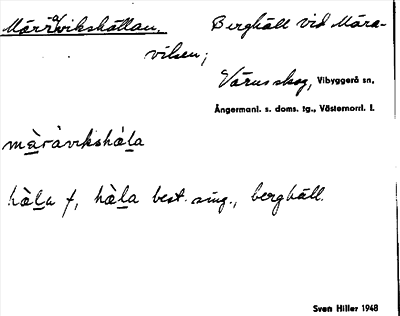 Märravikshällan, Berghäll vid Mära-
viken;
Värnsskog, Vibyggerå sn,
Ångermanl. s. doms. tg., Västernorrl. l.
màràvikshàla
hàla f, hàla best. sing., berghäll.
Sven Hiller 1948